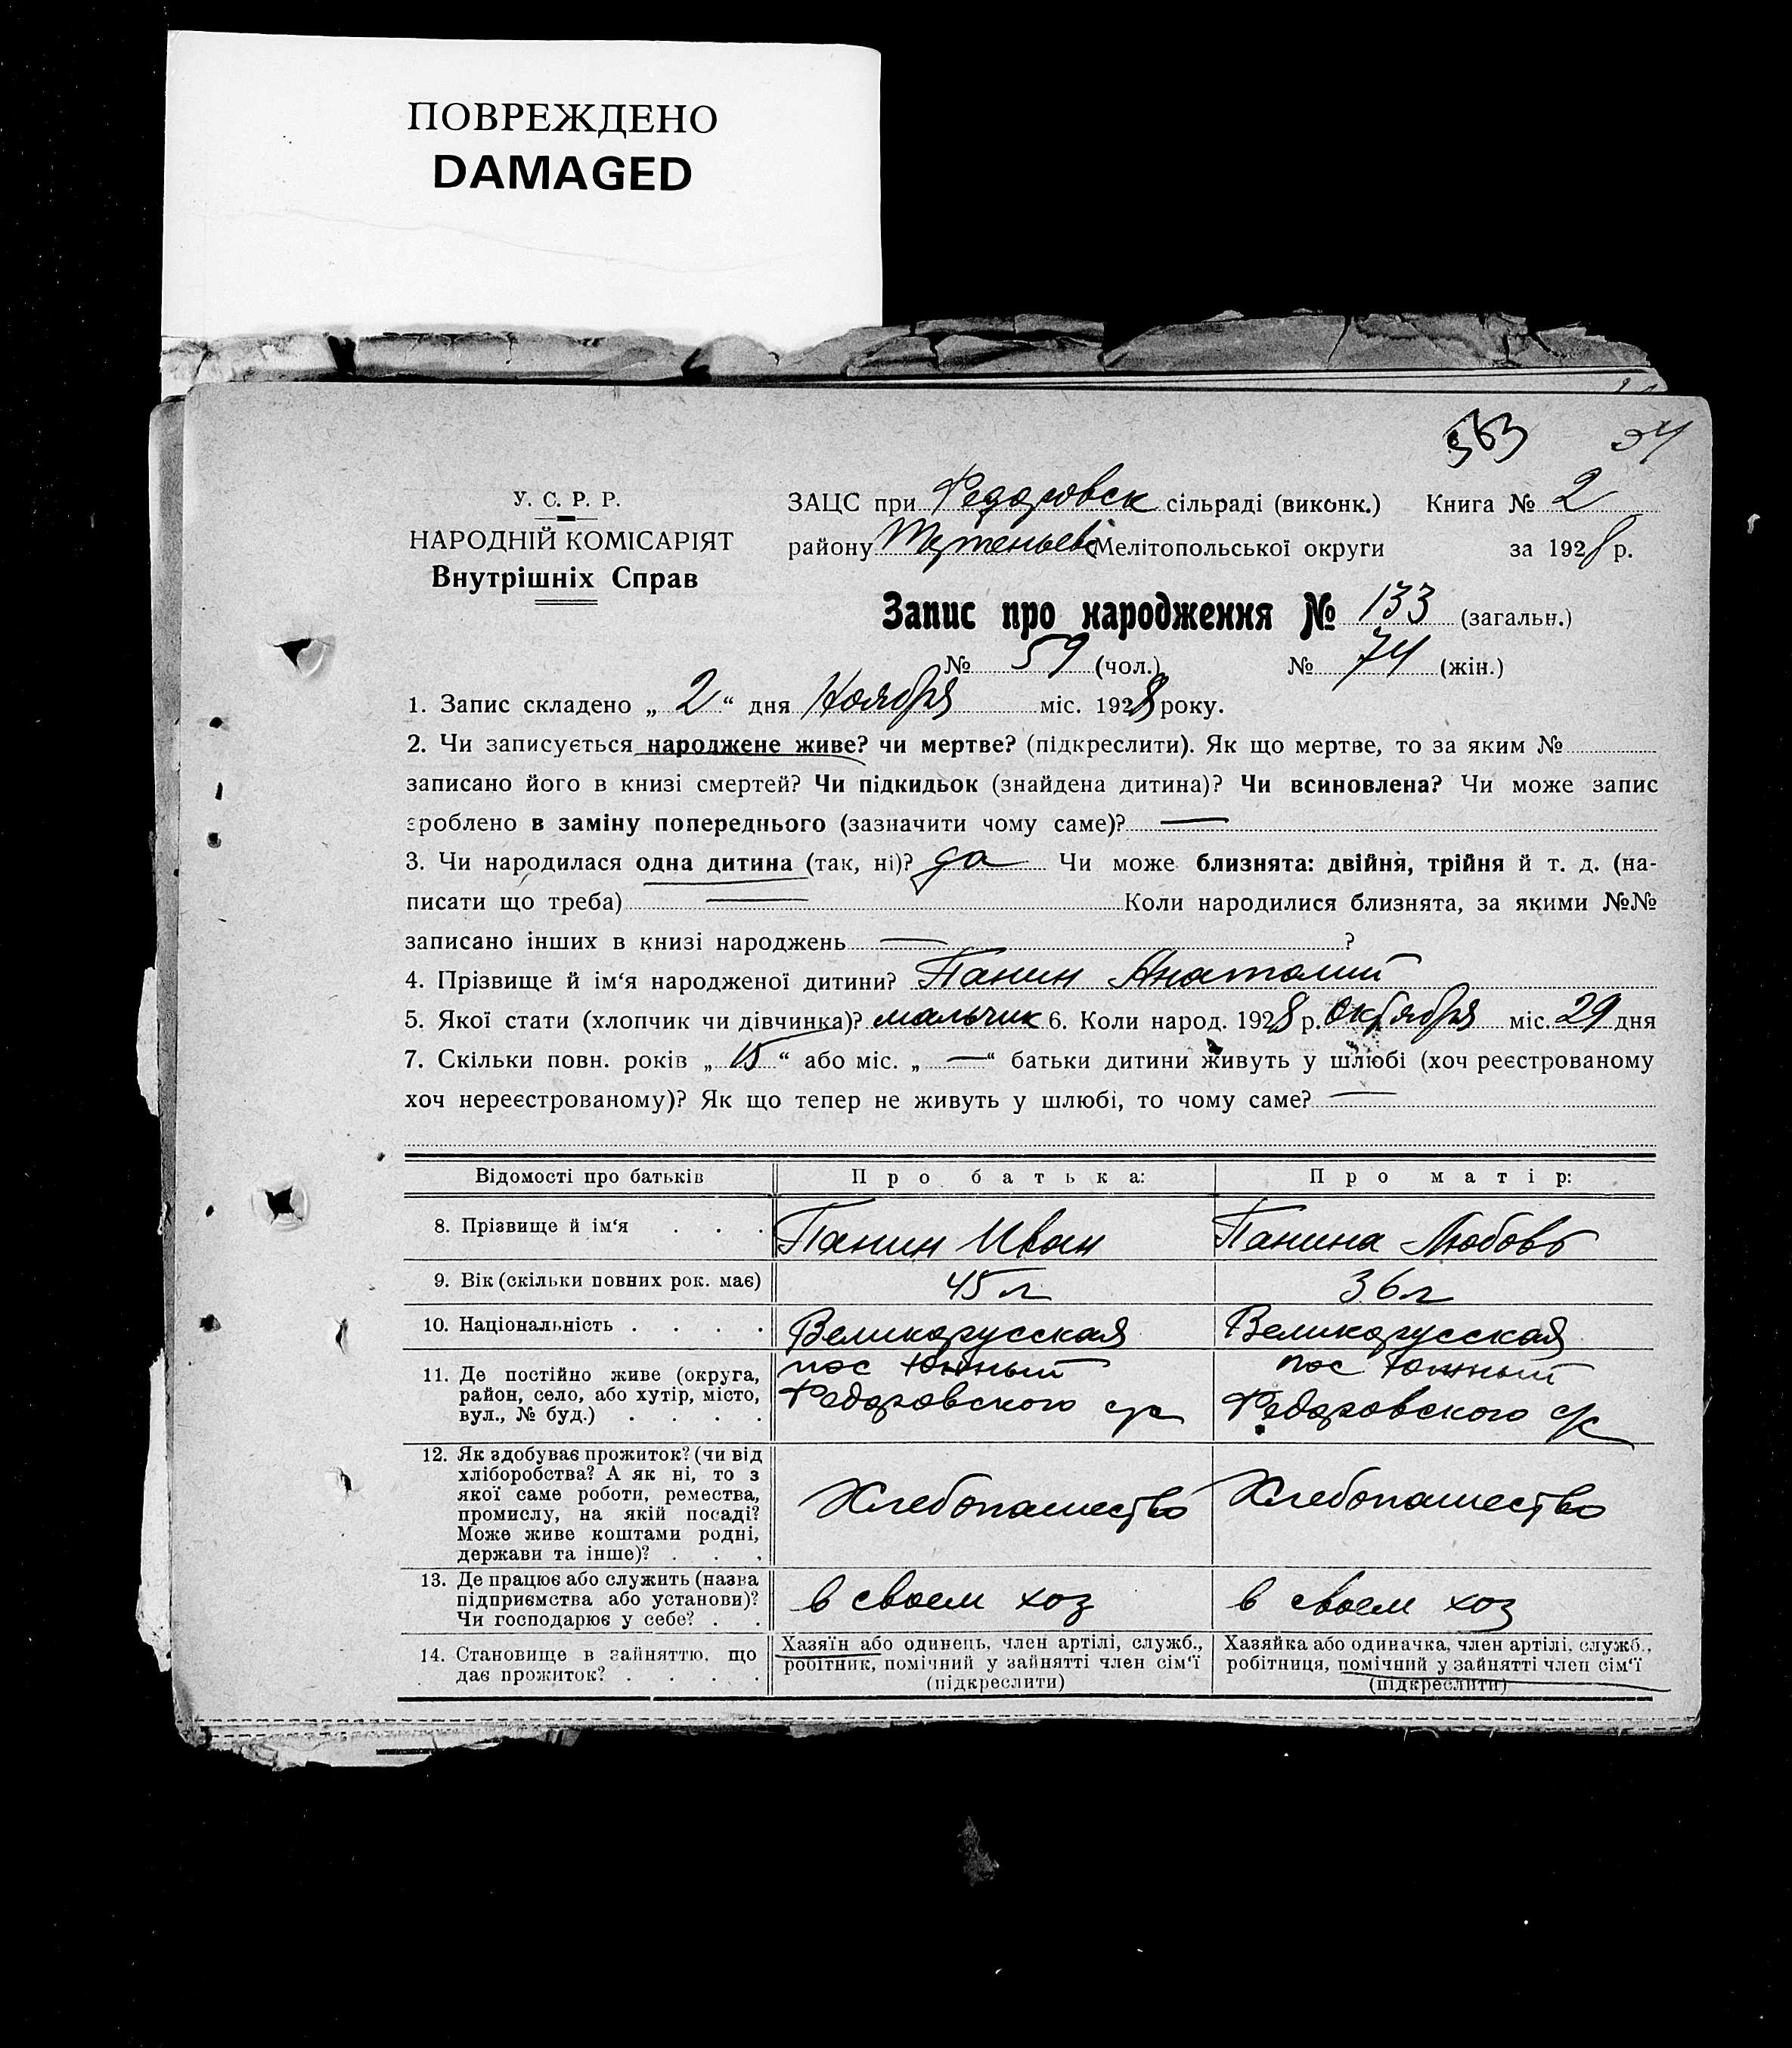 ПОВРЕЖДЕНО
DAMAGED
563 34
У. С. Р. Р.
НАРОДНІЙ КОМІСАРІЯТ
Внутрішніх Справ
ЗАЦС при Федоровск сільраді (виконк.) Книга № 2
району Мелітопольської округи за 1928 р.
Запис про народження № 133 (загальн.)
№ 59 (чол.) № 74 (жін.)
1. Запис складено „ 2 “ дня Ноября міс. 1928 року.
2. Чи записується народжене живе? чи мертве? (підкреслити). Як що мертве, то за яким №
записано його в книзі смертей? Чи підкидьок (знайдена дитина)? Чи всиновлена? Чи може запис
зроблено в заміну попереднього (зазначити чому саме)? —
3. Чи народилася одна дитина (так, ні)? да Чи може близнята: двійня, трійня й т. д. (на-
писати що треба) — Коли народилися близнята, за якими №№
записано інших в книзі народжень — ?
4. Прізвище й ім‘я народженої дитини? Панин Анатолий
5. Якої стати (хлопчик чи дівчинка)? мальчик 6. Коли народ. 1928 р. Октября міс. 29 дня
7. Скільки повн. років „ 15 “ або міс. „ — “ батьки дитини живуть у шлюбі (хоч реєстрованому
хоч нереєстрованому)? Як що тепер не живуть у шлюбі, то чому саме? —
Відомості про батьків Про батька: Про матір:
8. Прізвище й ім‘я . . . Панин Иван Панина Любовь
9. Вік (скільки повних рок. має) 45 л 36 л
10. Національність . . . . Великорусская Великорусская
11. Де постійно живе (округа,
район, село, або хутір, місто,
вул., № буд.) . . . .
пос Южный
Федоровского с/с
пос Южный
Федоровского с/с
12. Як здобуває прожиток? (чи від
хліборобства? А як ні, то з
якої саме роботи, ремества,
промислу, на якій посаді?
Може живе коштами родні,
держави та інше)? . . .
Хлебопашество Хлебопашество
13. Де працює або служить (назва
підприємства або установи)?
Чи господарює у себе? . .
в своем хоз в своем хоз
14. Становище в зайняттю, що
дає прожиток? . . . .
Хазяїн або одинець, член артілі, служб.,
робітник, помічний у зайнятті член сім‘ї
(підкреслити)
Хазяйка або одиначка, член артілі, служб.,
робітниця, помічний у зайнятті член сім‘ї
(підкреслити)